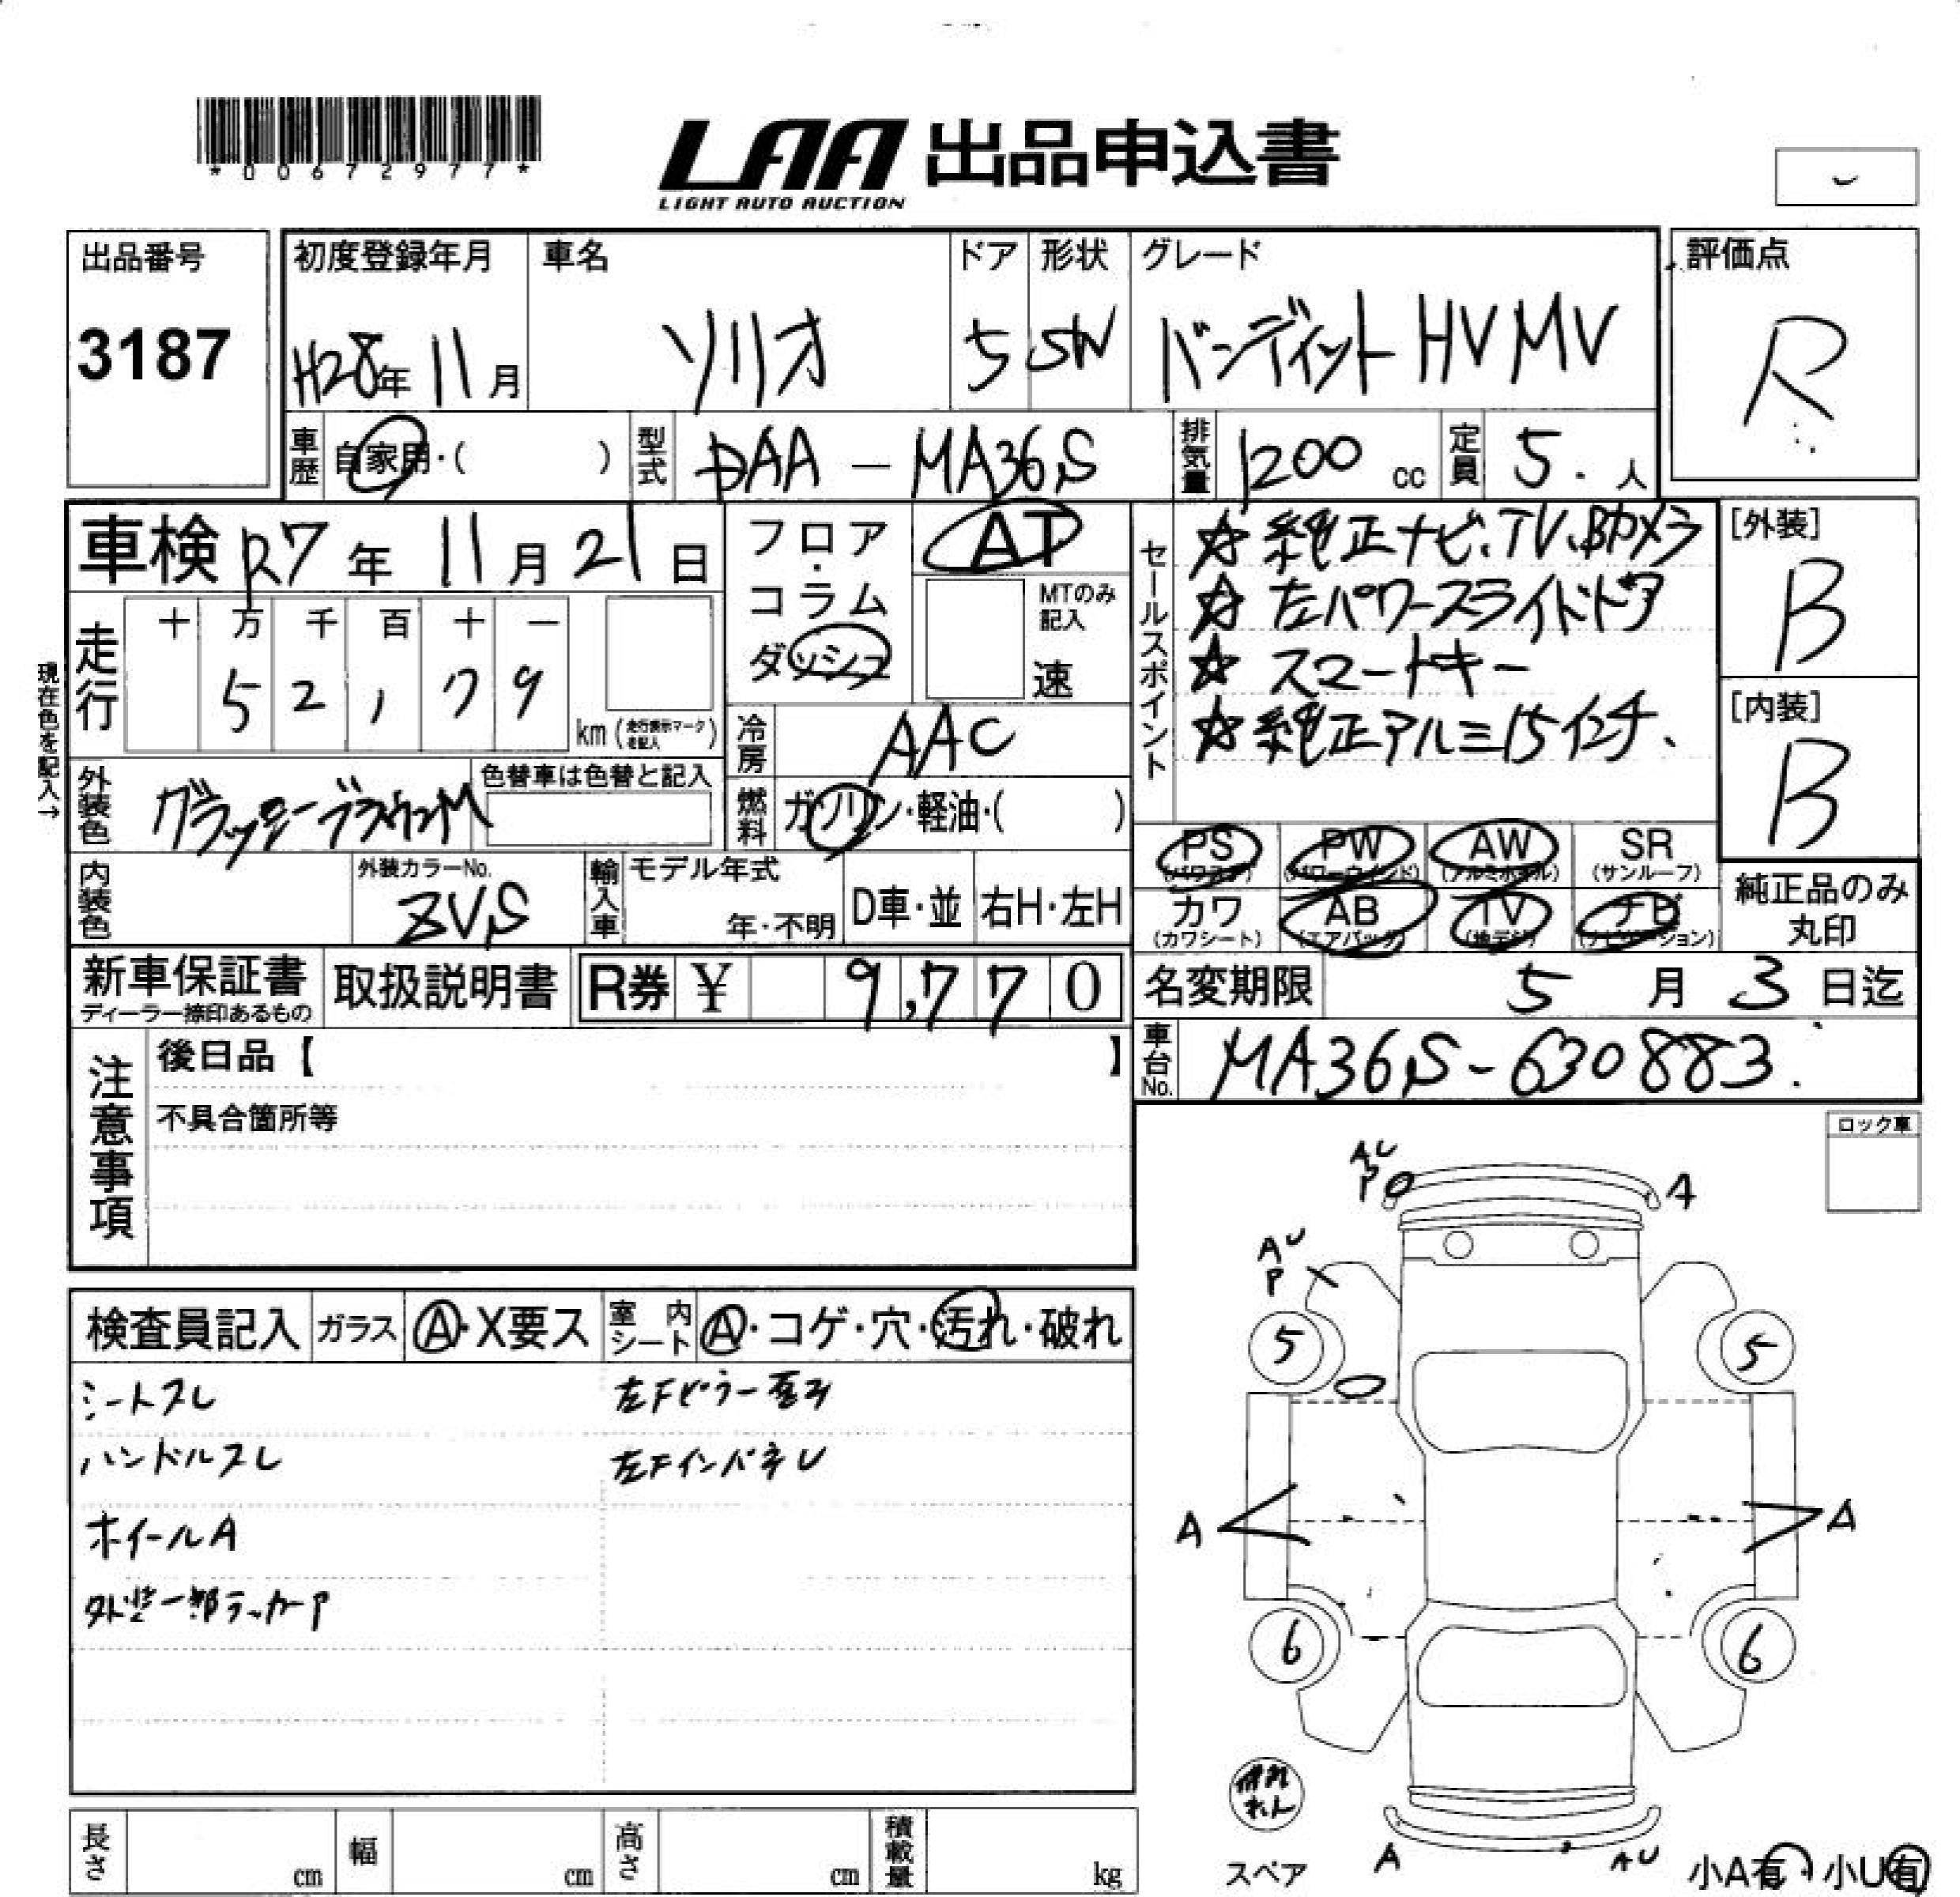 *00672977*
LAA 出品申込書
LIGHT AUTO AUCTION
出品番号 3187
初度登録年月 H28年 11月
車名 ソリオ
ドア 5
形状 SW
グレード バンディット HV MV
評価点 R
車歴 自家用・( )
型式 DAA - MA36S
排気量 1200 cc
定員 5. 人
車検 R7年 11月 21日
走行 十 万 千 百 十 一
52,179 km (走行表示マークを記入)
現在色を記入→
フロア・コラム ダッシュ
AT
MTのみ記入 速
冷房 AAC
燃料 ガソリン・軽油・( )
セールスポイント
☆ 純正ナビ、TV、Bカメラ
☆ 左パワースライドドア
☆ スマートキー
☆ 純正アルミ15インチ、
[外装] B
[内装] B
外装色 グラッシーブラウンM
色替車は色替と記入
内装色
外装カラーNo. ZVS
輸入車 モデル年式 年・不明 D車・並 右H・左H
PS (パワステ) PW (パワーウインド) AW (アルミホイル) SR (サンルーフ)
カワ (カワシート) AB (エアバッグ) TV (地デジ) ナビ (ナビゲーション)
純正品のみ丸印
新車保証書 ディーラー捺印あるもの
取扱説明書
R券 ¥ 9,770
名変期限 5月 3日迄
車台No. MA36S-630883.
注意事項
後日品【 】
不具合箇所等
ロック車
検査員記入 ガラス A・X要ス 室内シート A・コゲ・穴・汚れ・破れ
シートスレ
ハンドルスレ
ホイールA
外装一部ラッカーP
左Fピラー歪み
左FインパネU
AU
P
A
AU
P
5
5
A
A
6
6
スペア
A
AU
小A有・小U有
長さ cm 幅 cm 高さ cm 積載量 kg